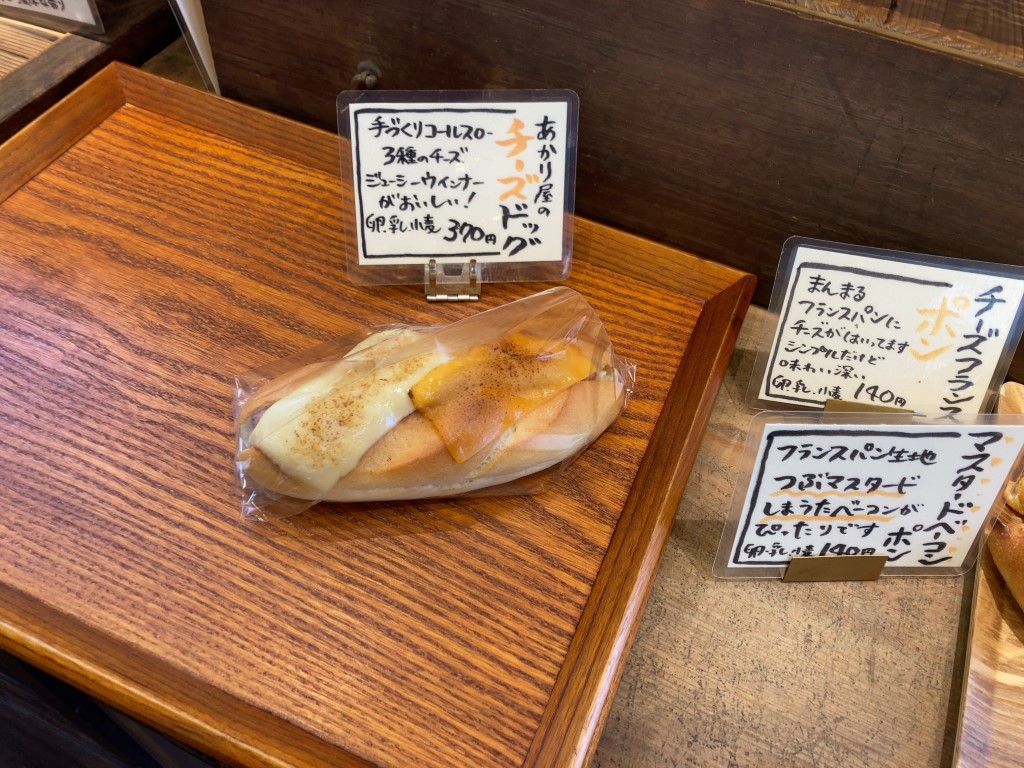 あかり屋の
チーズドッグ
手づくりコールスロー
3種のチーズ
ジューシーウインナー
がおいしい!
卵.乳.小麦 370円
チーズフランス
ポン
まんまる
フランスパンに
チーズがはいってます
シンプルだけど
味わい深い
卵.乳.小麦 140円
マスタードベーコン
ポン
フランスパン生地
つぶマスタード
しまうたベーコンが
ぴったりです
卵.乳.小麦 190円